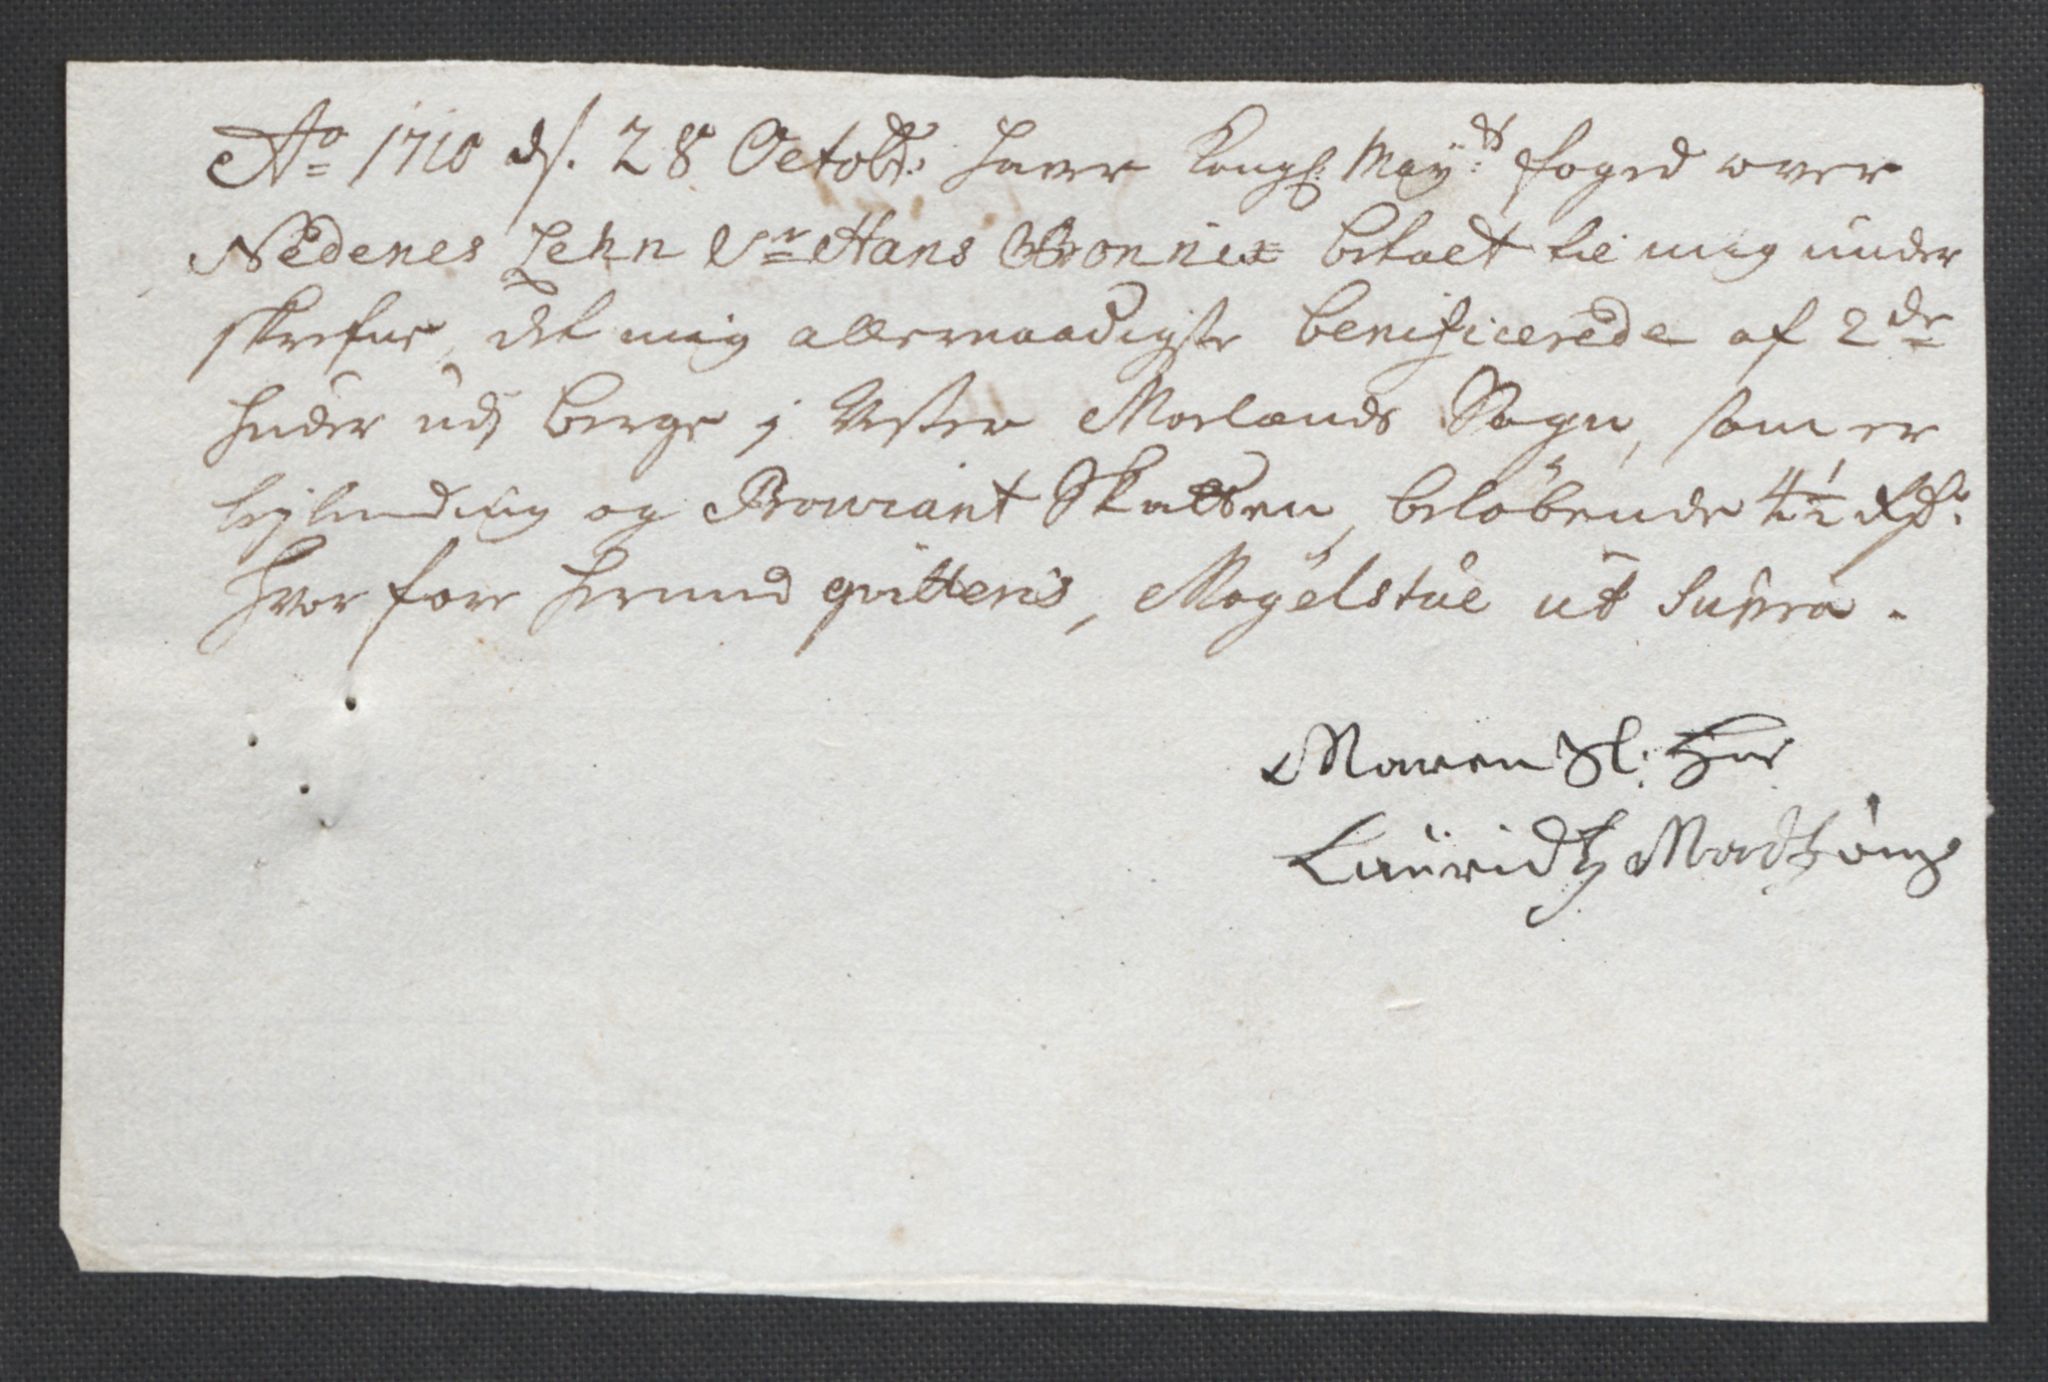 Ao 1710 ds. 28 Octobr: hawer Kongl: May:ts foged ower
Nedenes Lehn Sr Hans Bonnix betalt til mig under
skrefne, det mig allernaadigste benificerede af 2de
huder udj Berge j Vester Molands Sogn, som er
leylending og Proviant Skatten, beløbende 4½ Rdr
hvor fore hermed qvitteris, Mogelstue ut Supra.
Maren Sl: Her
Lauridtz Madtzøns